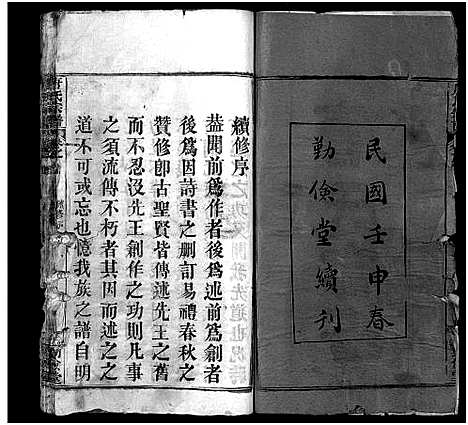 民國壬申春
勤儉堂續刊
續修序
葢聞前爲作者後爲述前爲創者
後爲因詩書之刪訂易禮春秋之
贊修卽古聖賢皆傳述先王之舊
而不忍沒先王創作之功則凡事
之須流傳不朽者其因而述之之
道不可或忘也憶我族之譜自明